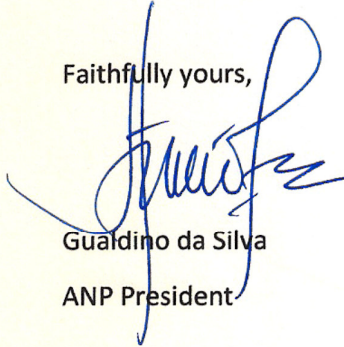 Faithfully yours,
Gualdino da Silva
ANP President